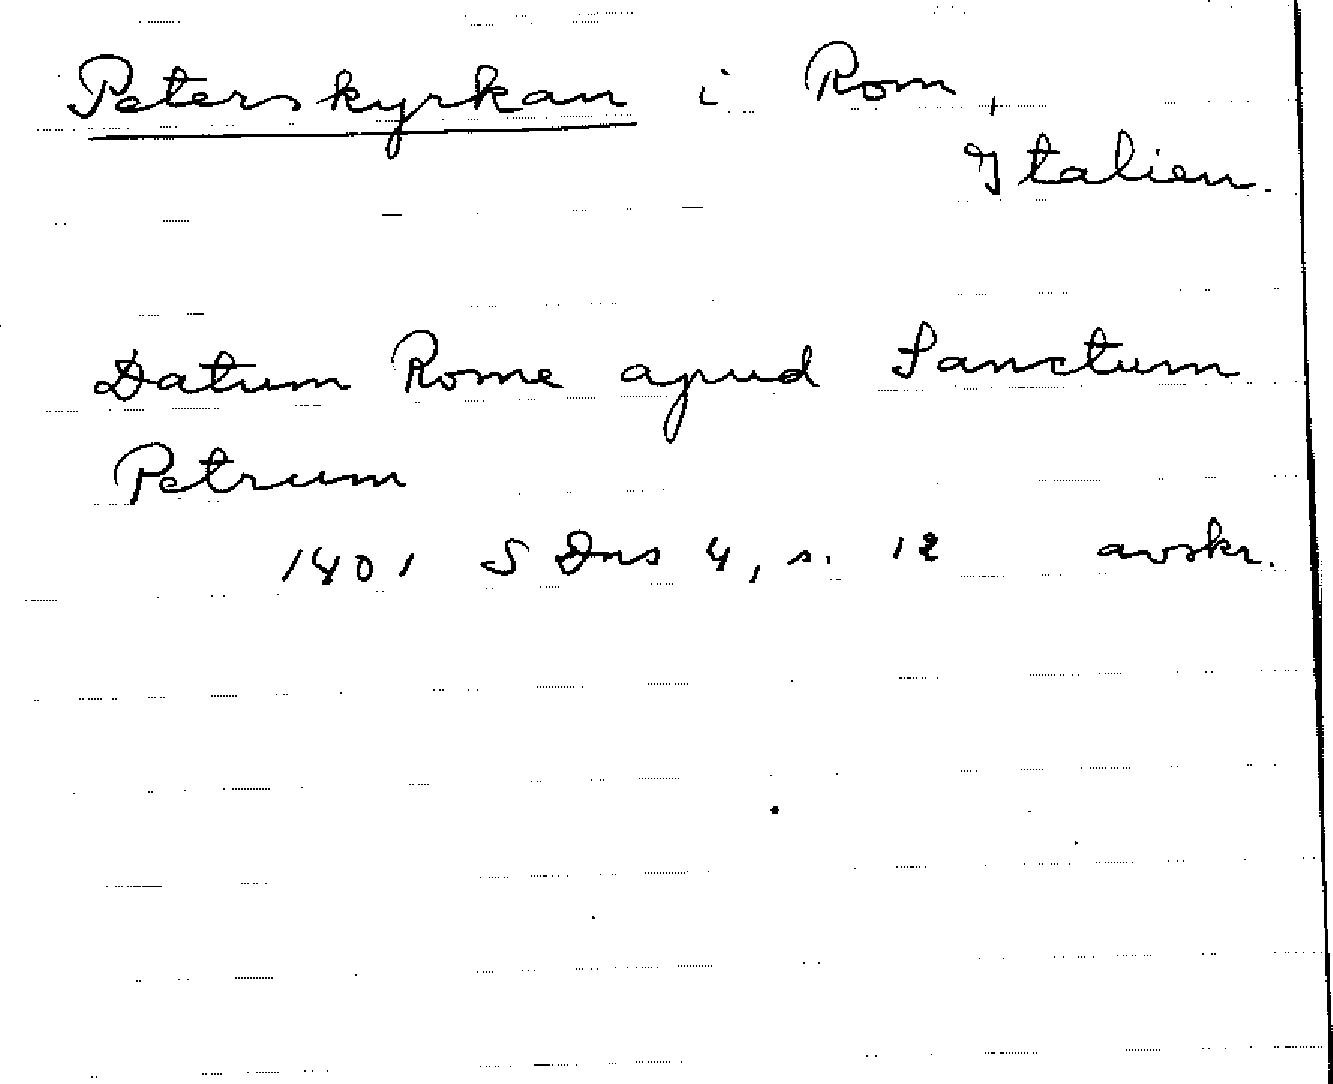 Peterskyrkan i Rom,
Italien.
Datum Rome apud Sanctum
Petrum
1401 S Dns 4, s. 12 avskr.